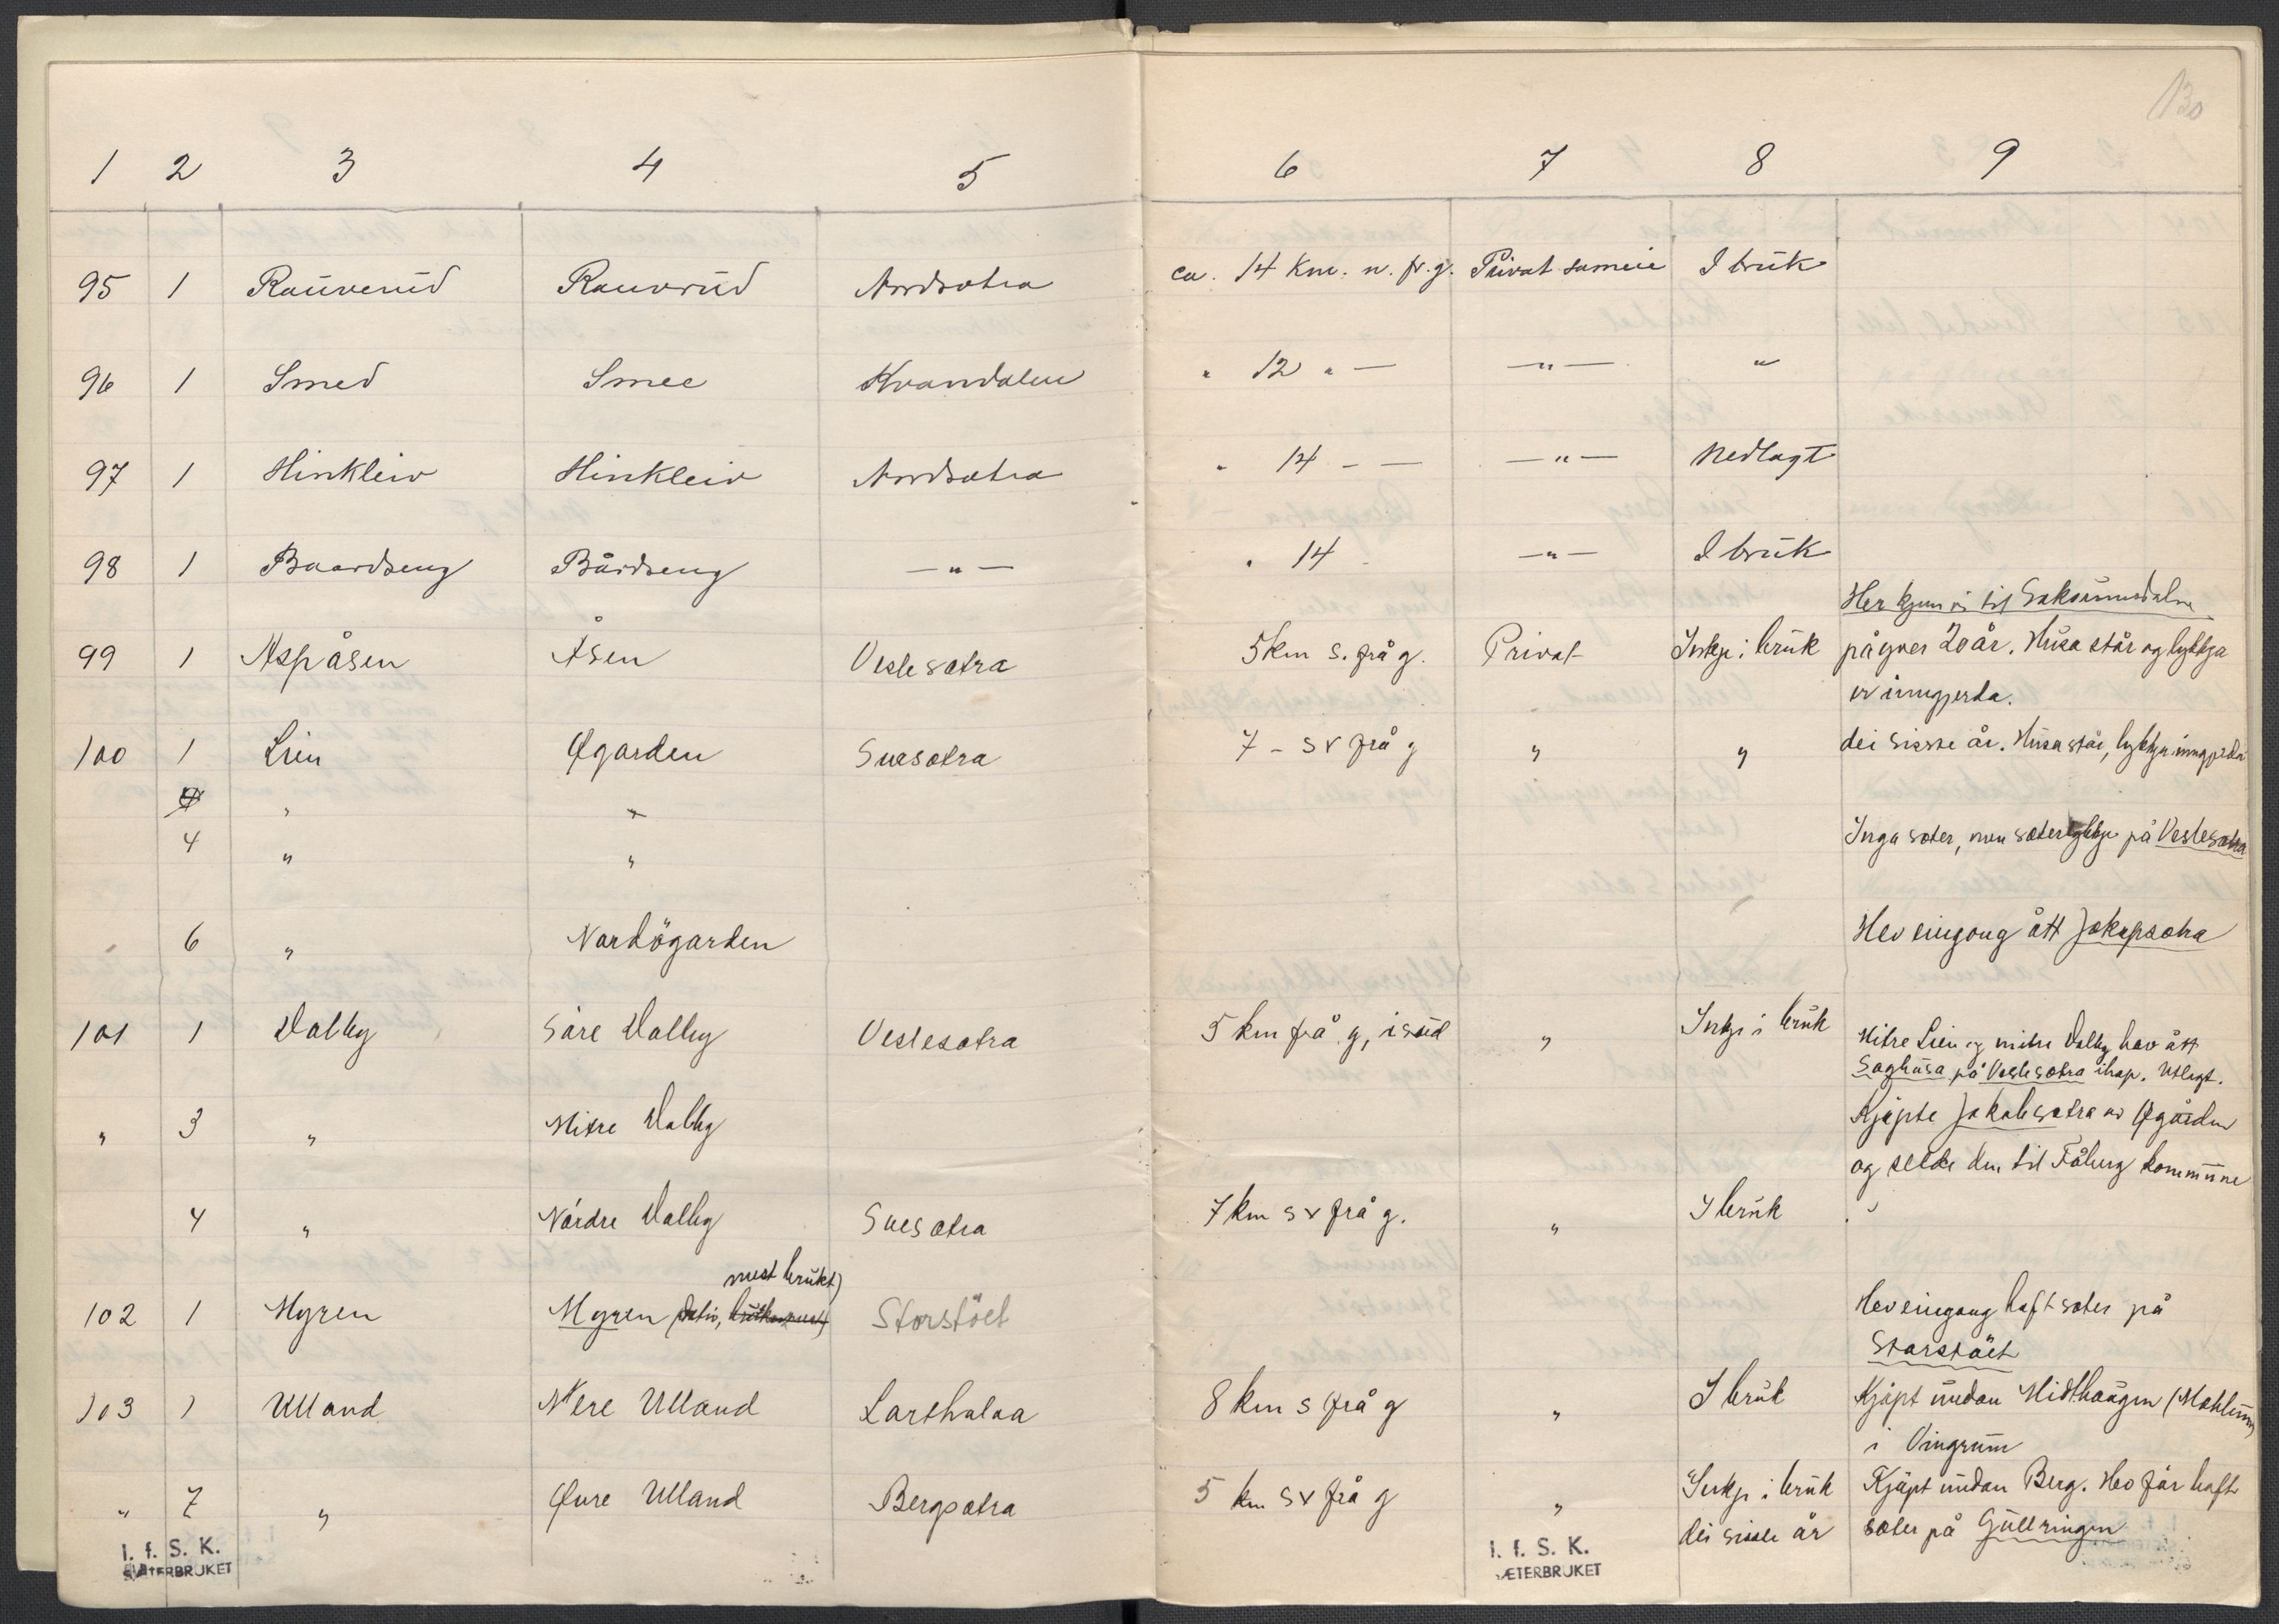 130
1 2 3 4 5 6 7 8 9
95 1 Rauverud Rauvrud Nordsætra ca. 14 Km. n. fr. g. Privat sameie I bruk
96 1 Smed Smee Kvandalen " 12 " — —"— "
97 1 Hinkleiv Hinkleiv Nordsætra " 14 - — —"— Nedlagt
98 1 Baardseng Bårdseng —"— " 14 - —"— I bruk
Her kjem vi til Saksumdalen
99 1 Aspåsen Åsen Veslesætra 5 km s. frå g. Privat Inkje i bruk på yver 20 år. Husa står og lykkja
er inngjerda.
100 1 Lien Øgarden Suesætra 7 - sv frå g " " dei sisste år. Husa står, lykkja inngjerda
" "
4 " " Inga sæter, men sæterlykkje på Veslesætra
6 " Nordögarden Hev eingong ått Jokupsætra
101 1 Dalby Søre Dalby Veslesætra 5 km frå g, i sud " Inkje i bruk Mitre Lien og mitre Dalby hav ått
Saghusa på Veslesætra ihop. Utlagt.
" 3 " Mitre Dalby Kjøpte Jakobsætra av Øgarden
og selde den til Fåberg kommune
4 " Nørdre Dalby Suesætra 7 km sv frå g. " I bruk
mest brukt)
102 1 Myren Myren Storstöet Hev eingong haft sæter på
Storstöet
103 1 Ulland Nere Ulland Larshølaa 8 km s frå g " I bruk Kjøpt undan Midthaugen (Mæhlum)
i Vingrum
" 7 " Øvre Ulland Bergsætra 5 km sv frå g " Inkje i bruk Kjøpt undan Berg. Hev før haft
dei sisste år sæter på Gullringen
I. f. S. K.
SÆTERBRUKET
I. f. S. K.
SÆTERBRUKET